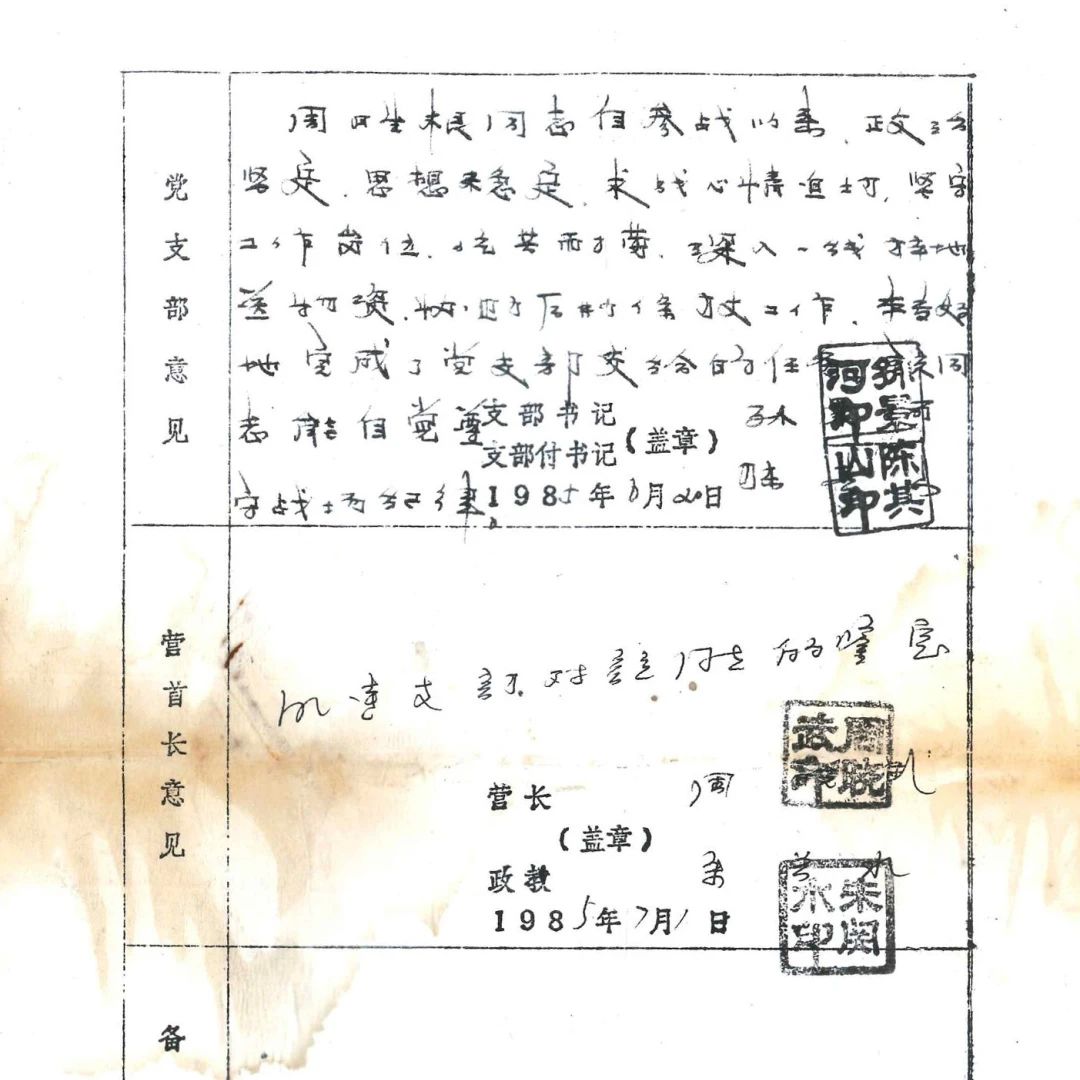 党支部意见
周 根同志自参战以来.政治
坚定.思想稳定.求战心情迫切,坚守
工作岗位.吃苦耐劳.深入一线阵地
送物资.做好了后 工作.较好
地完成了党支部交给的任务.该同
志能自觉遵
守战场纪律
支部书记
支部付书记
(盖章)
孙
陈
1985年6月20日
孙景河印
陈其山印
营首长意见
同 连支部对该同志的鉴定
营长 周
(盖章)
政教 朱
1985年7月1日
周晓武印
朱 水印
备